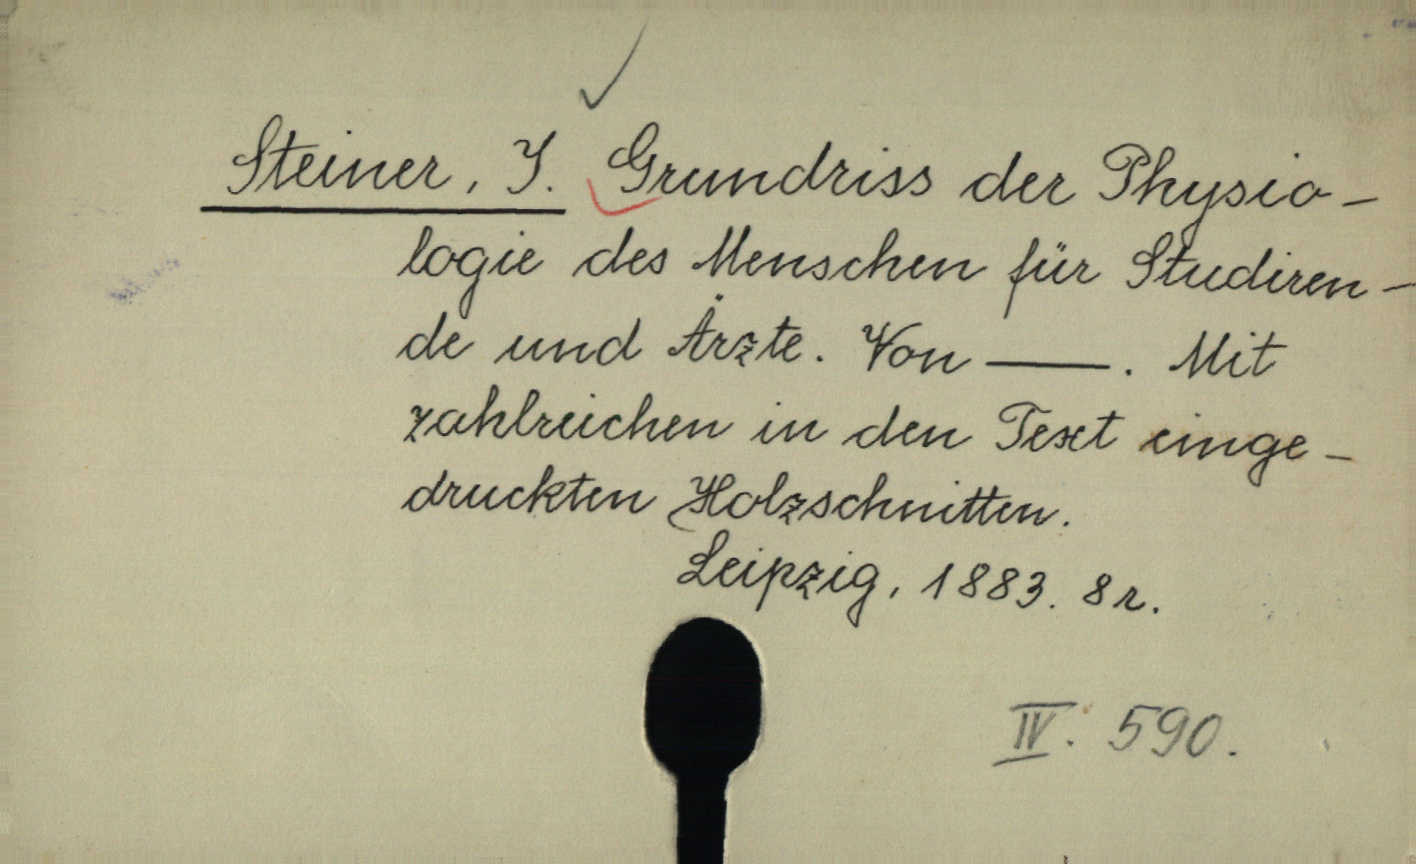 Steiner, J. Grundriss der Physio-
logie des Menschen für Studiren-
de und Ärzte. Von ——. Mit
zahlreichen in den Text einge-
druckten Holzschnitten.
Leipzig, 1883. 8r.
IV. 590.